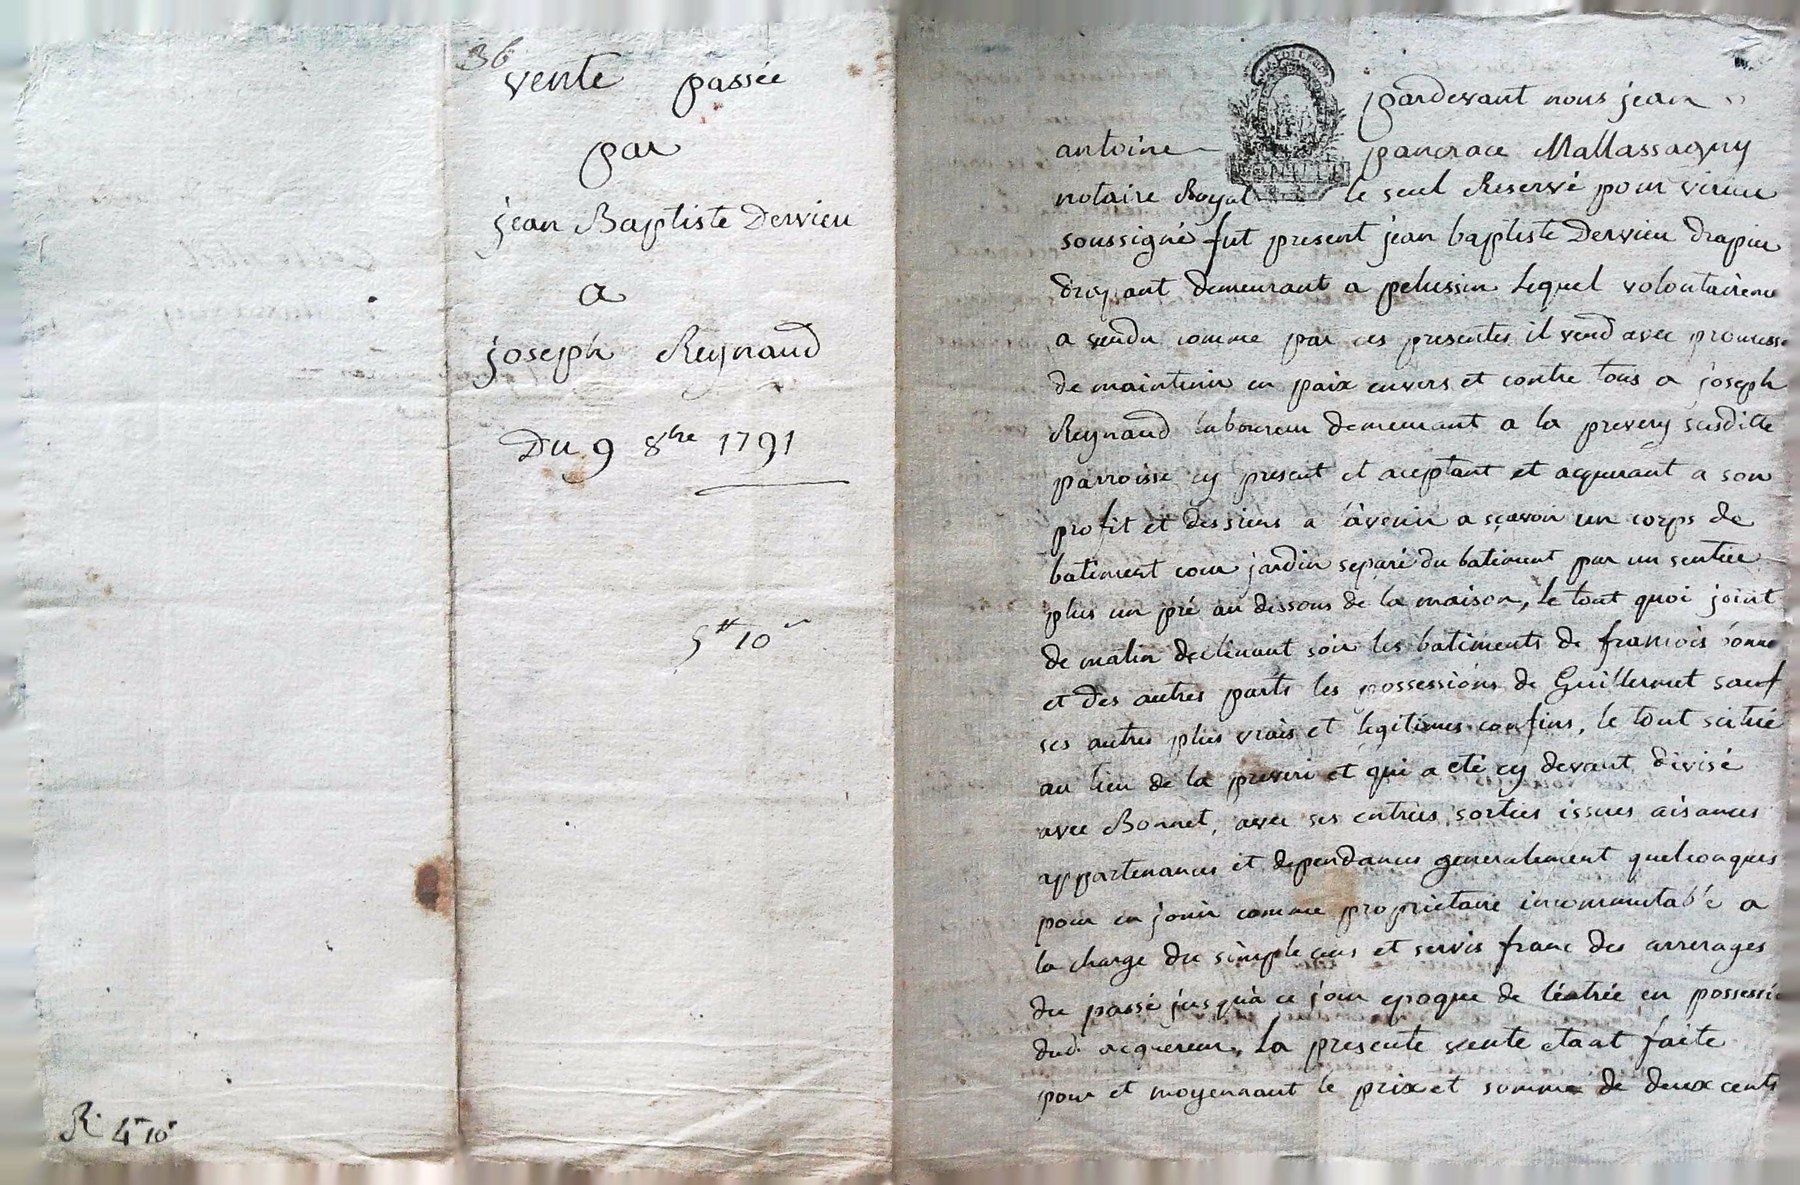 36
vente passée
par
jean Baptiste Dervieu
a
joseph Reynaud
Du 9 8bre 1791
5# 10s
R. 4# 10s
pardevant nous jean
antoine pancrace Mallassagny
notaire Royal le seul Reservé pour virieu
soussigné fut present jean baptiste Dervieu drapier
drojant demeurant a pelussin Lequel volontairement
a vendu comme par ces presentes il vend avec promesse
de maintenir en paix envers et contre tous a joseph
Reynaud laboureur demeurant a la prevery susditte
parroisse cy present et aceptant et acquerant a son
profit et des siens a l'avenir a sçavoir un corps de
batiment cour jardin separé du batiment par un sentier
plus un pré au dissous de la maison, le tout quoi joint
de matin declinant soir les batiments de francois bonnet
et des autres parts les possessions de Guillermet sauf
ses autres plus vrais et legitimes confins, le tout scitué
au lieu de la preveri et qui a eté cy devant divisé
avec Bonnet, avec ses entrées sorties issues aisances
appartenances et dependances generalement quelconques
pour en jouir comme proprietaire incommutable a
la charge du simple cens et servis franc des arrerages
du passé jusqu'a ce jour epoque de l'entrée en possessi
dud. acquereur, La presente vente etant faite
pour et moyennant le prix et somme de deux cents